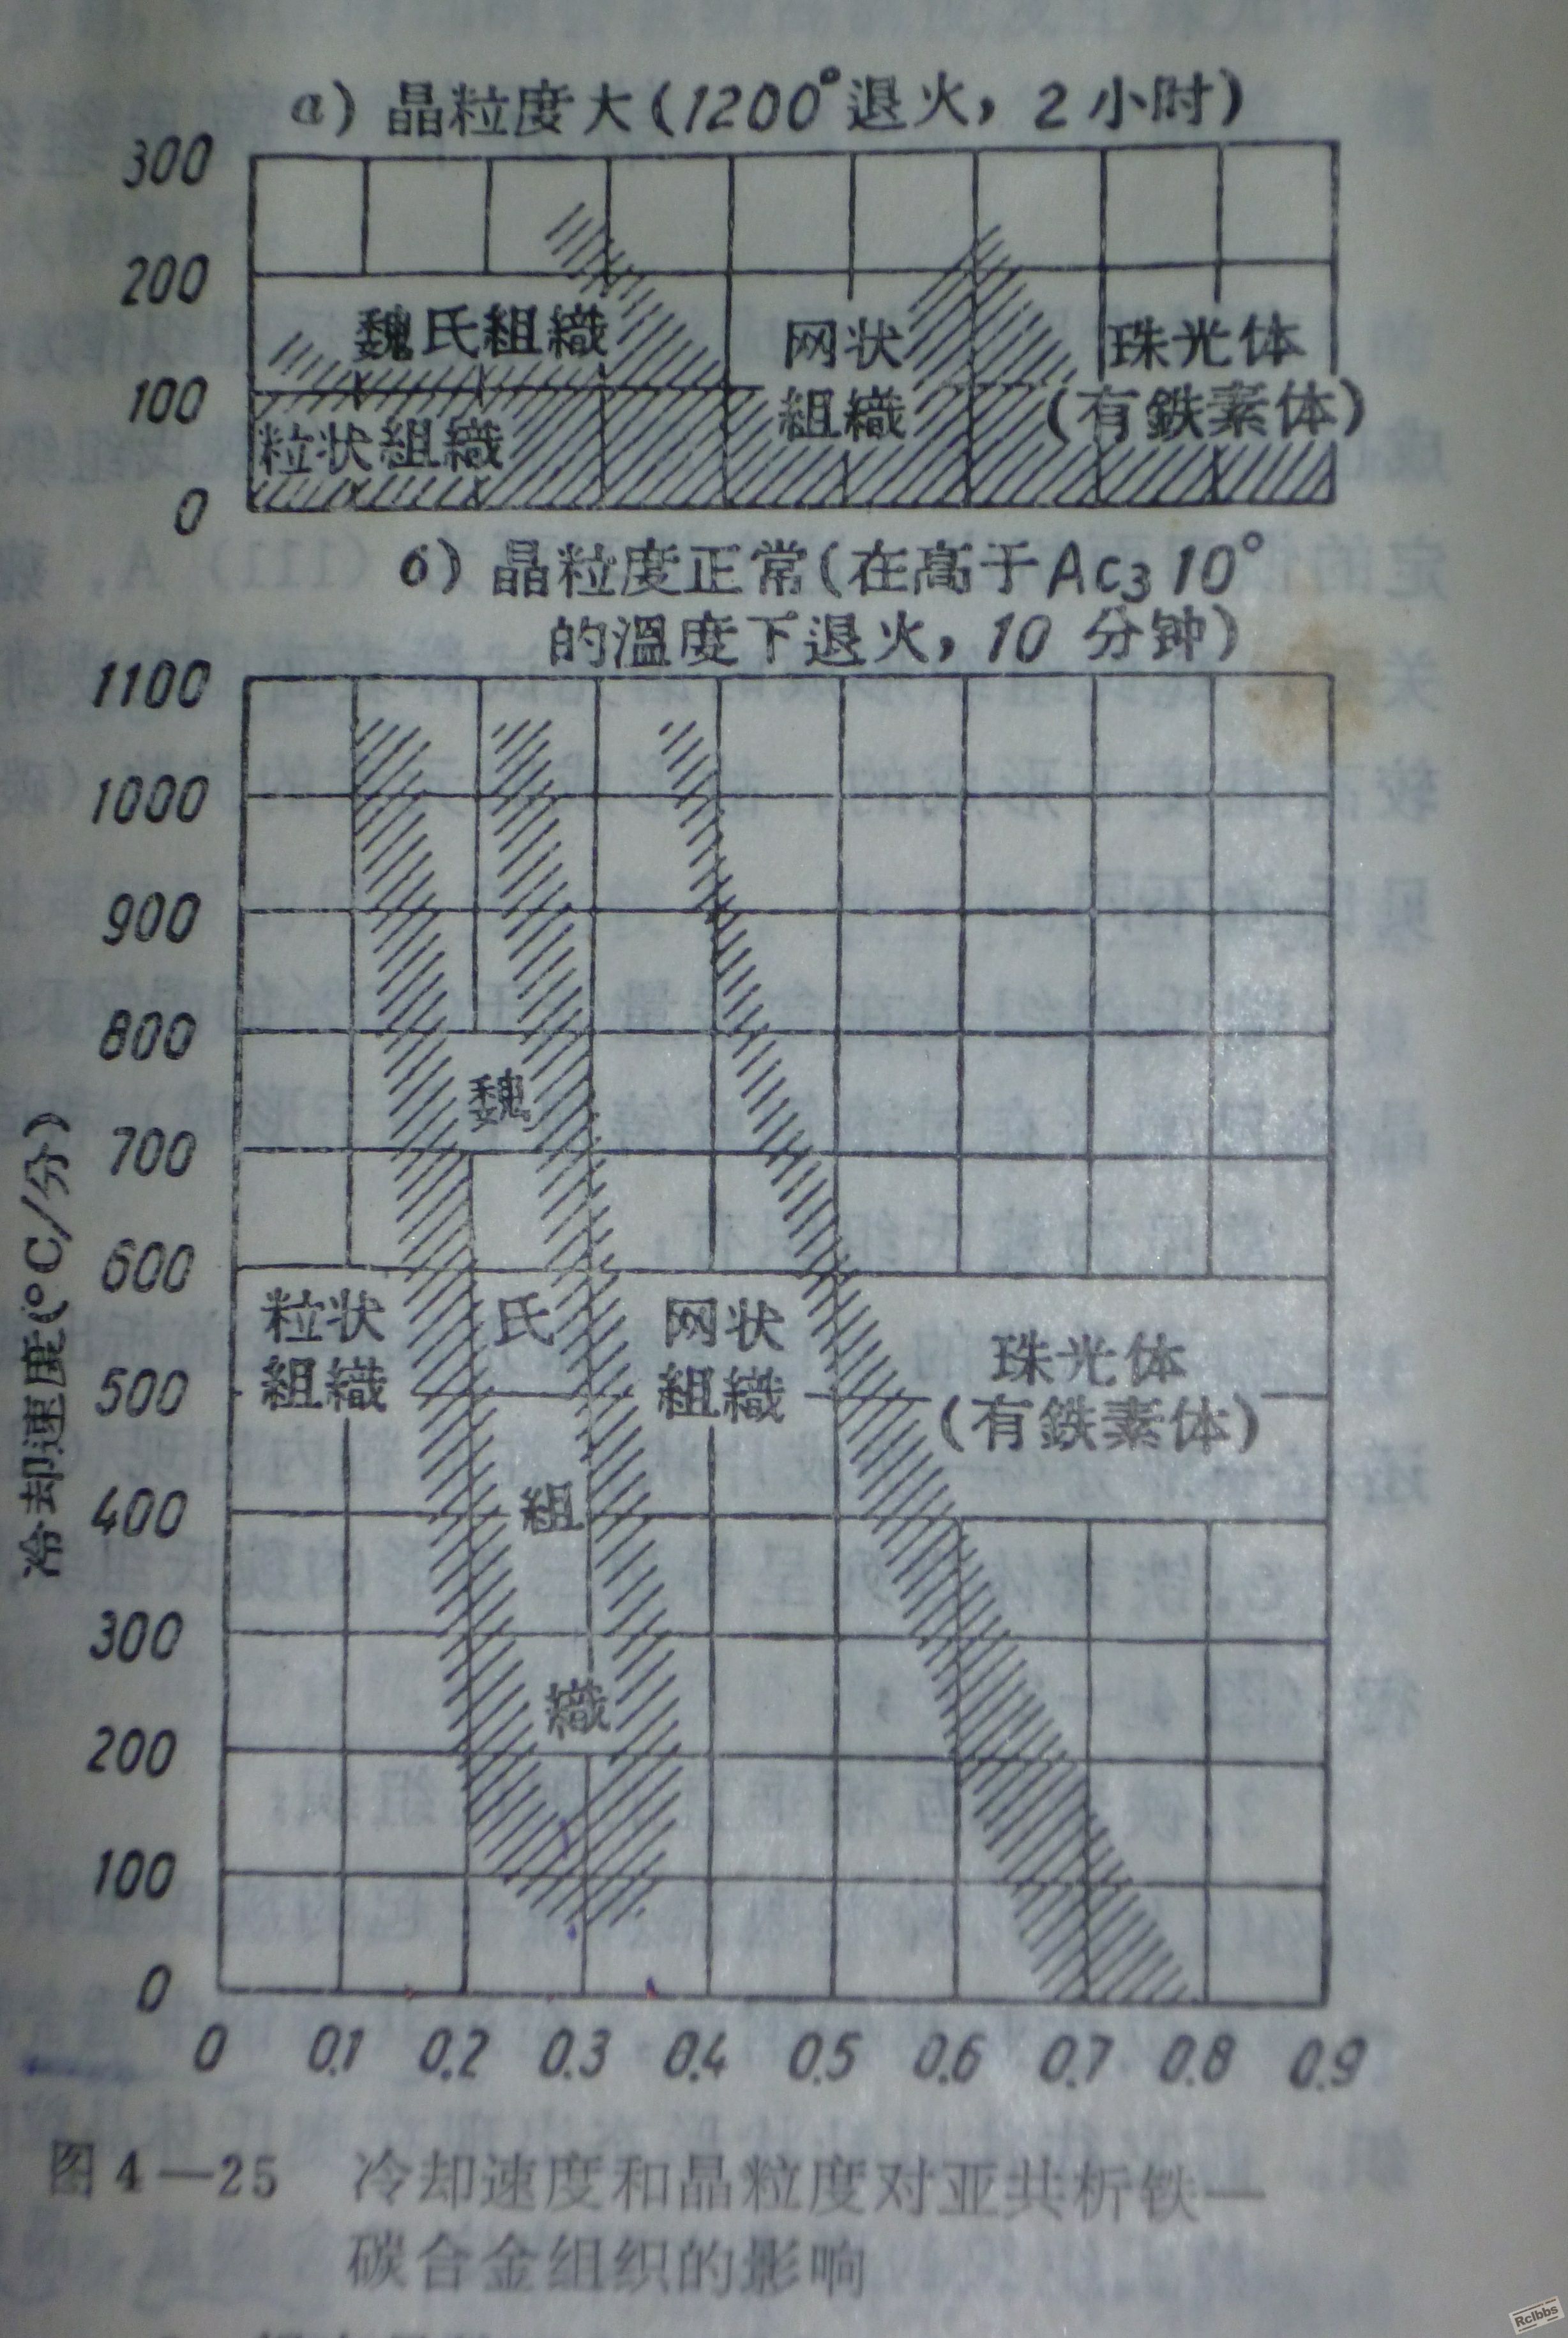 a) 晶粒度大(1200°退火, 2小时)
300
200
100
0
魏氏組織
粒状組織
网状
組織
珠光体
(有鉄素体)
б) 晶粒度正常(在高于Ac₃10°
的溫度下退火, 10 分钟)
1100
1000
900
800
700
600
500
400
300
200
100
0
冷却速度(°C/分)
粒状
組織
魏
氏
組
織
网状
組織
珠光体
(有鉄素体)
0 0.1 0.2 0.3 0.4 0.5 0.6 0.7 0.8 0.9
图4—25 冷却速度和晶粒度对亚共析铁—
碳合金组织的影响
Rclbbs